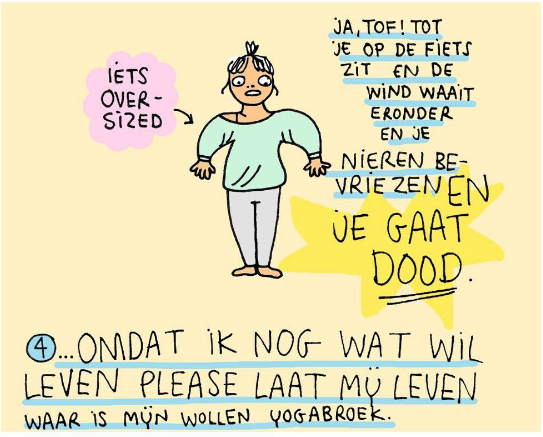 iETS
OVER-
SiZED
JA, TOF! TOT
JE OP DE FiETS
ZiT EN DE
WiND WAAiT
ERONDER
EN JE
NiEREN BE-
VRiEZEN EN
JE GAAT
DOOD.
4 ...OMDAT iK NOG WAT WiL
LEVEN PLEASE LAAT MIJ LEVEN
WAAR iS MIJN WOLLEN YOGABROEK.